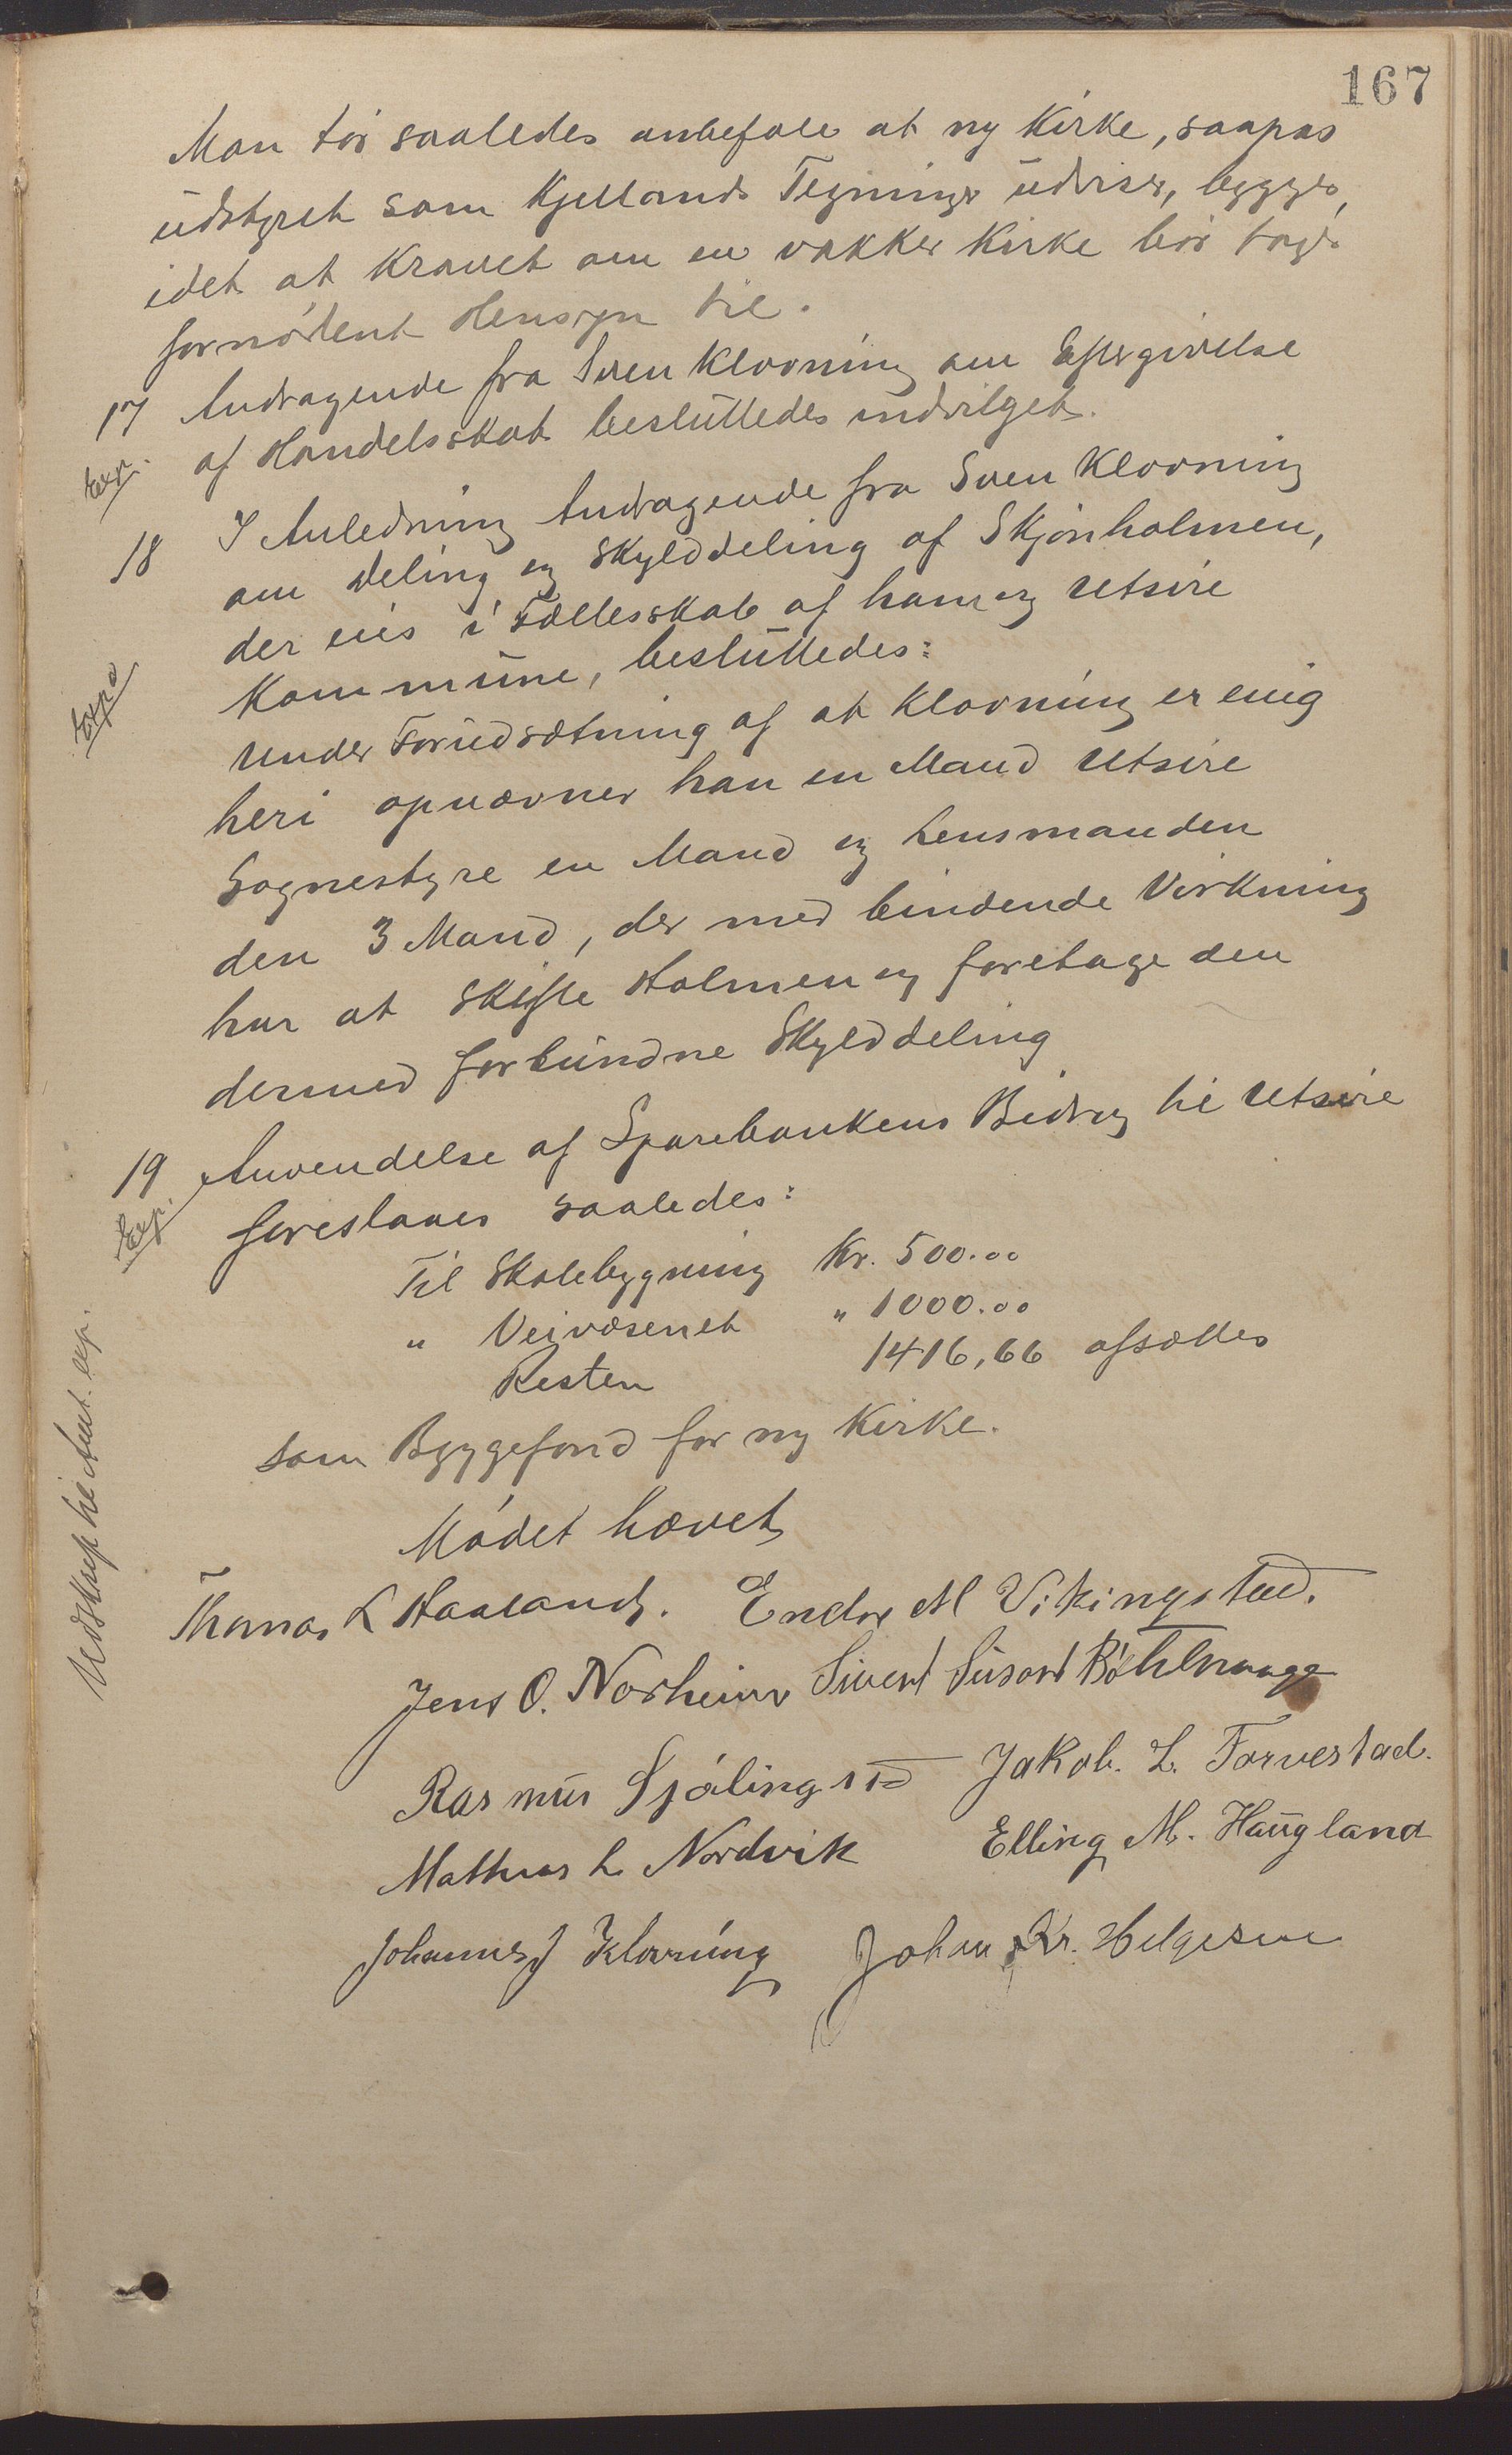 167
Man tør saaledes anbefale at ny Kirke, saapas
udstyret som Kjellands Tegninger udviser, bygges,
idet at Kravet om en vakker Kirke bør tages
fornødent Hensyn til.
17 Andragende fra Sven Klovning om Eftergivelse
Exp. af Handelsskat besluttedes indvilget.
18 I Anledning Andragende fra Sven Klovning
om Deling og Skylddeling af Skjønholmen,
der eies i Fællesskab af ham og Utsire
Exp Kommune, besluttedes:
Under Forudsætning af at Klovning er enig
heri opnævner han en Mand Utsire
Sognestyre en Mand og Lensmanden
den 3 Mand, der med bindende Virkning
har at skifte Holmen og foretage den
dermed forbundne Skylddeling
19 Anvendelse af Sparebankens Bidrag til Utsire
Exp. foreslaaes saaledes:
Til Skolebygning Kr. 500.00
" Veivæsenet " 1000.00
Resten 1416,66 afsættes
som Byggefond for ny Kirke.
Udskrift til Amt. exp.
Mødet hævet
Thomas L Haaland. Endre M Vikingstad.
Jens O. Norheim Sivert
Rasmus Jakob. L. Torvestad.
Mathias L. Nordvik Elling M. Haugland
Johannes J Klovning Johan Kr. Helgesen